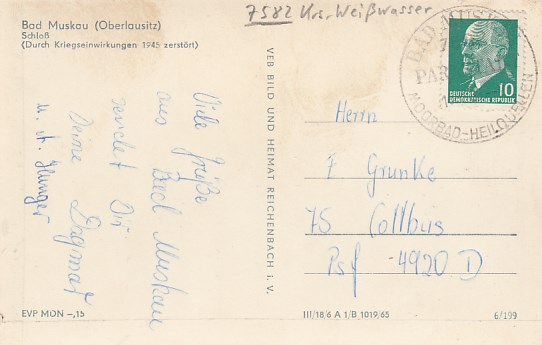 7582 Krs. Weißwasser
Bad Muskau (Oberlausitz)
Schloß
(Durch Kriegseinwirkungen 1945 zerstört)
Viele Grüße
aus Bad Muskau
sendet Dir
Deine Dagmar
EVP MON -,15
VEB BILD UND HEIMAT REICHENBACH i. V.
BAD MUSKAU
PARK
MOORBAD-HEILQUELLEN
10
DEUTSCHE
DEMOKRATISCHE REPUBLIK
Herrn
F Grunke
75 Cottbus
Psf 4920 D
III/18/6 A 1/B 1019/65
6/199